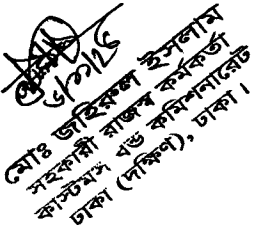 ৬/১১/২৫
মোঃ জহিরুল ইসলাম
সহকারী রাজস্ব কর্মকর্তা
কাস্টমস বন্ড কমিশনারেট
ঢাকা (দক্ষিণ), ঢাকা।